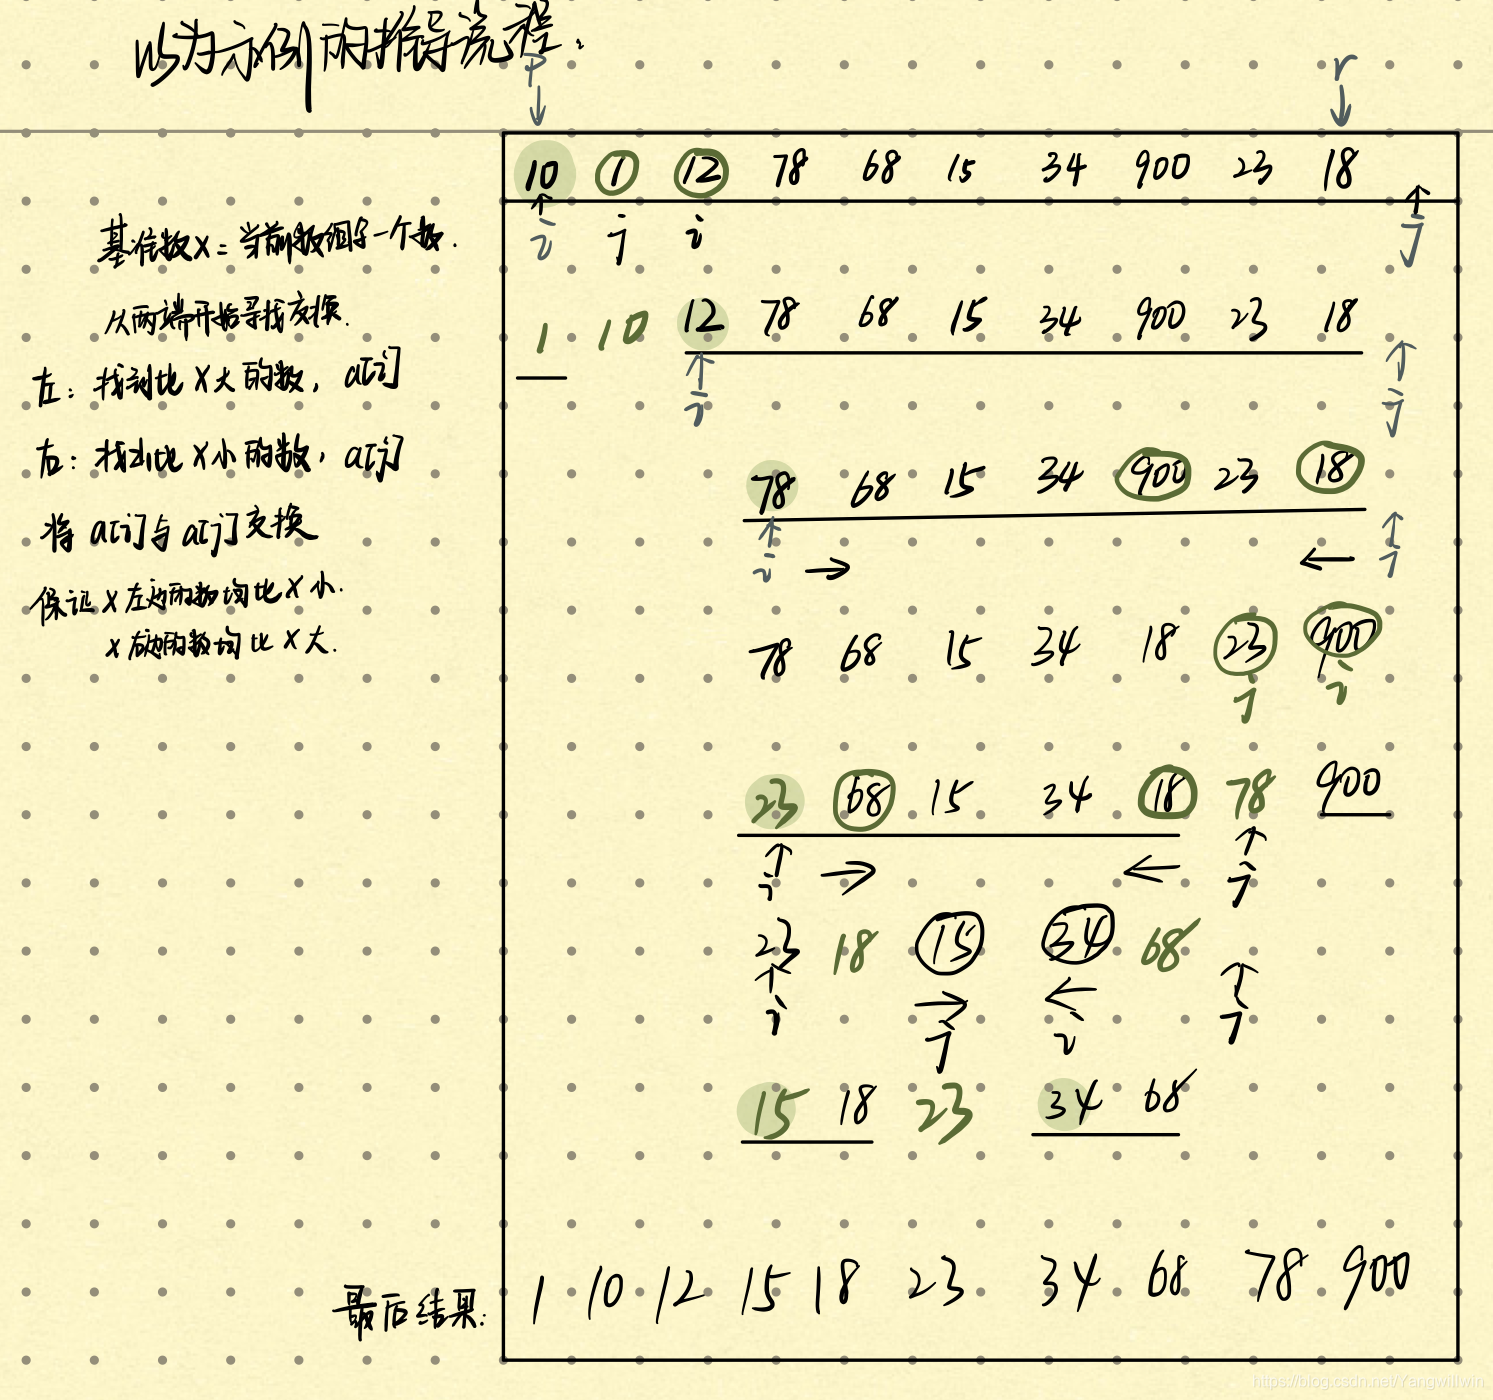 以为示例的推导流程.
p r
10 1 12 78 68 15 34 900 23 18
i j i j
基准数x=当前数组第一个数.
1 10 12 78 68 15 34 900 23 18
从两端开始寻找交换.
i j
左: 找到比x大的数, a[i]
右: 找出比x小的数, a[j]
78 68 15 34 900 23 18
将 a[i]与a[j]交换
i j
保证x左边的数均比x小.
x右边的数均比x大.
78 68 15 34 18 23 900
j i
23 68 15 34 18 78 900
i j
23 18 15 34 68
i j i j
15 18 23 34 68
最后结果: 1 10 12 15 18 23 34 68 78 900
https://blog.csdn.net/Yangwillwin